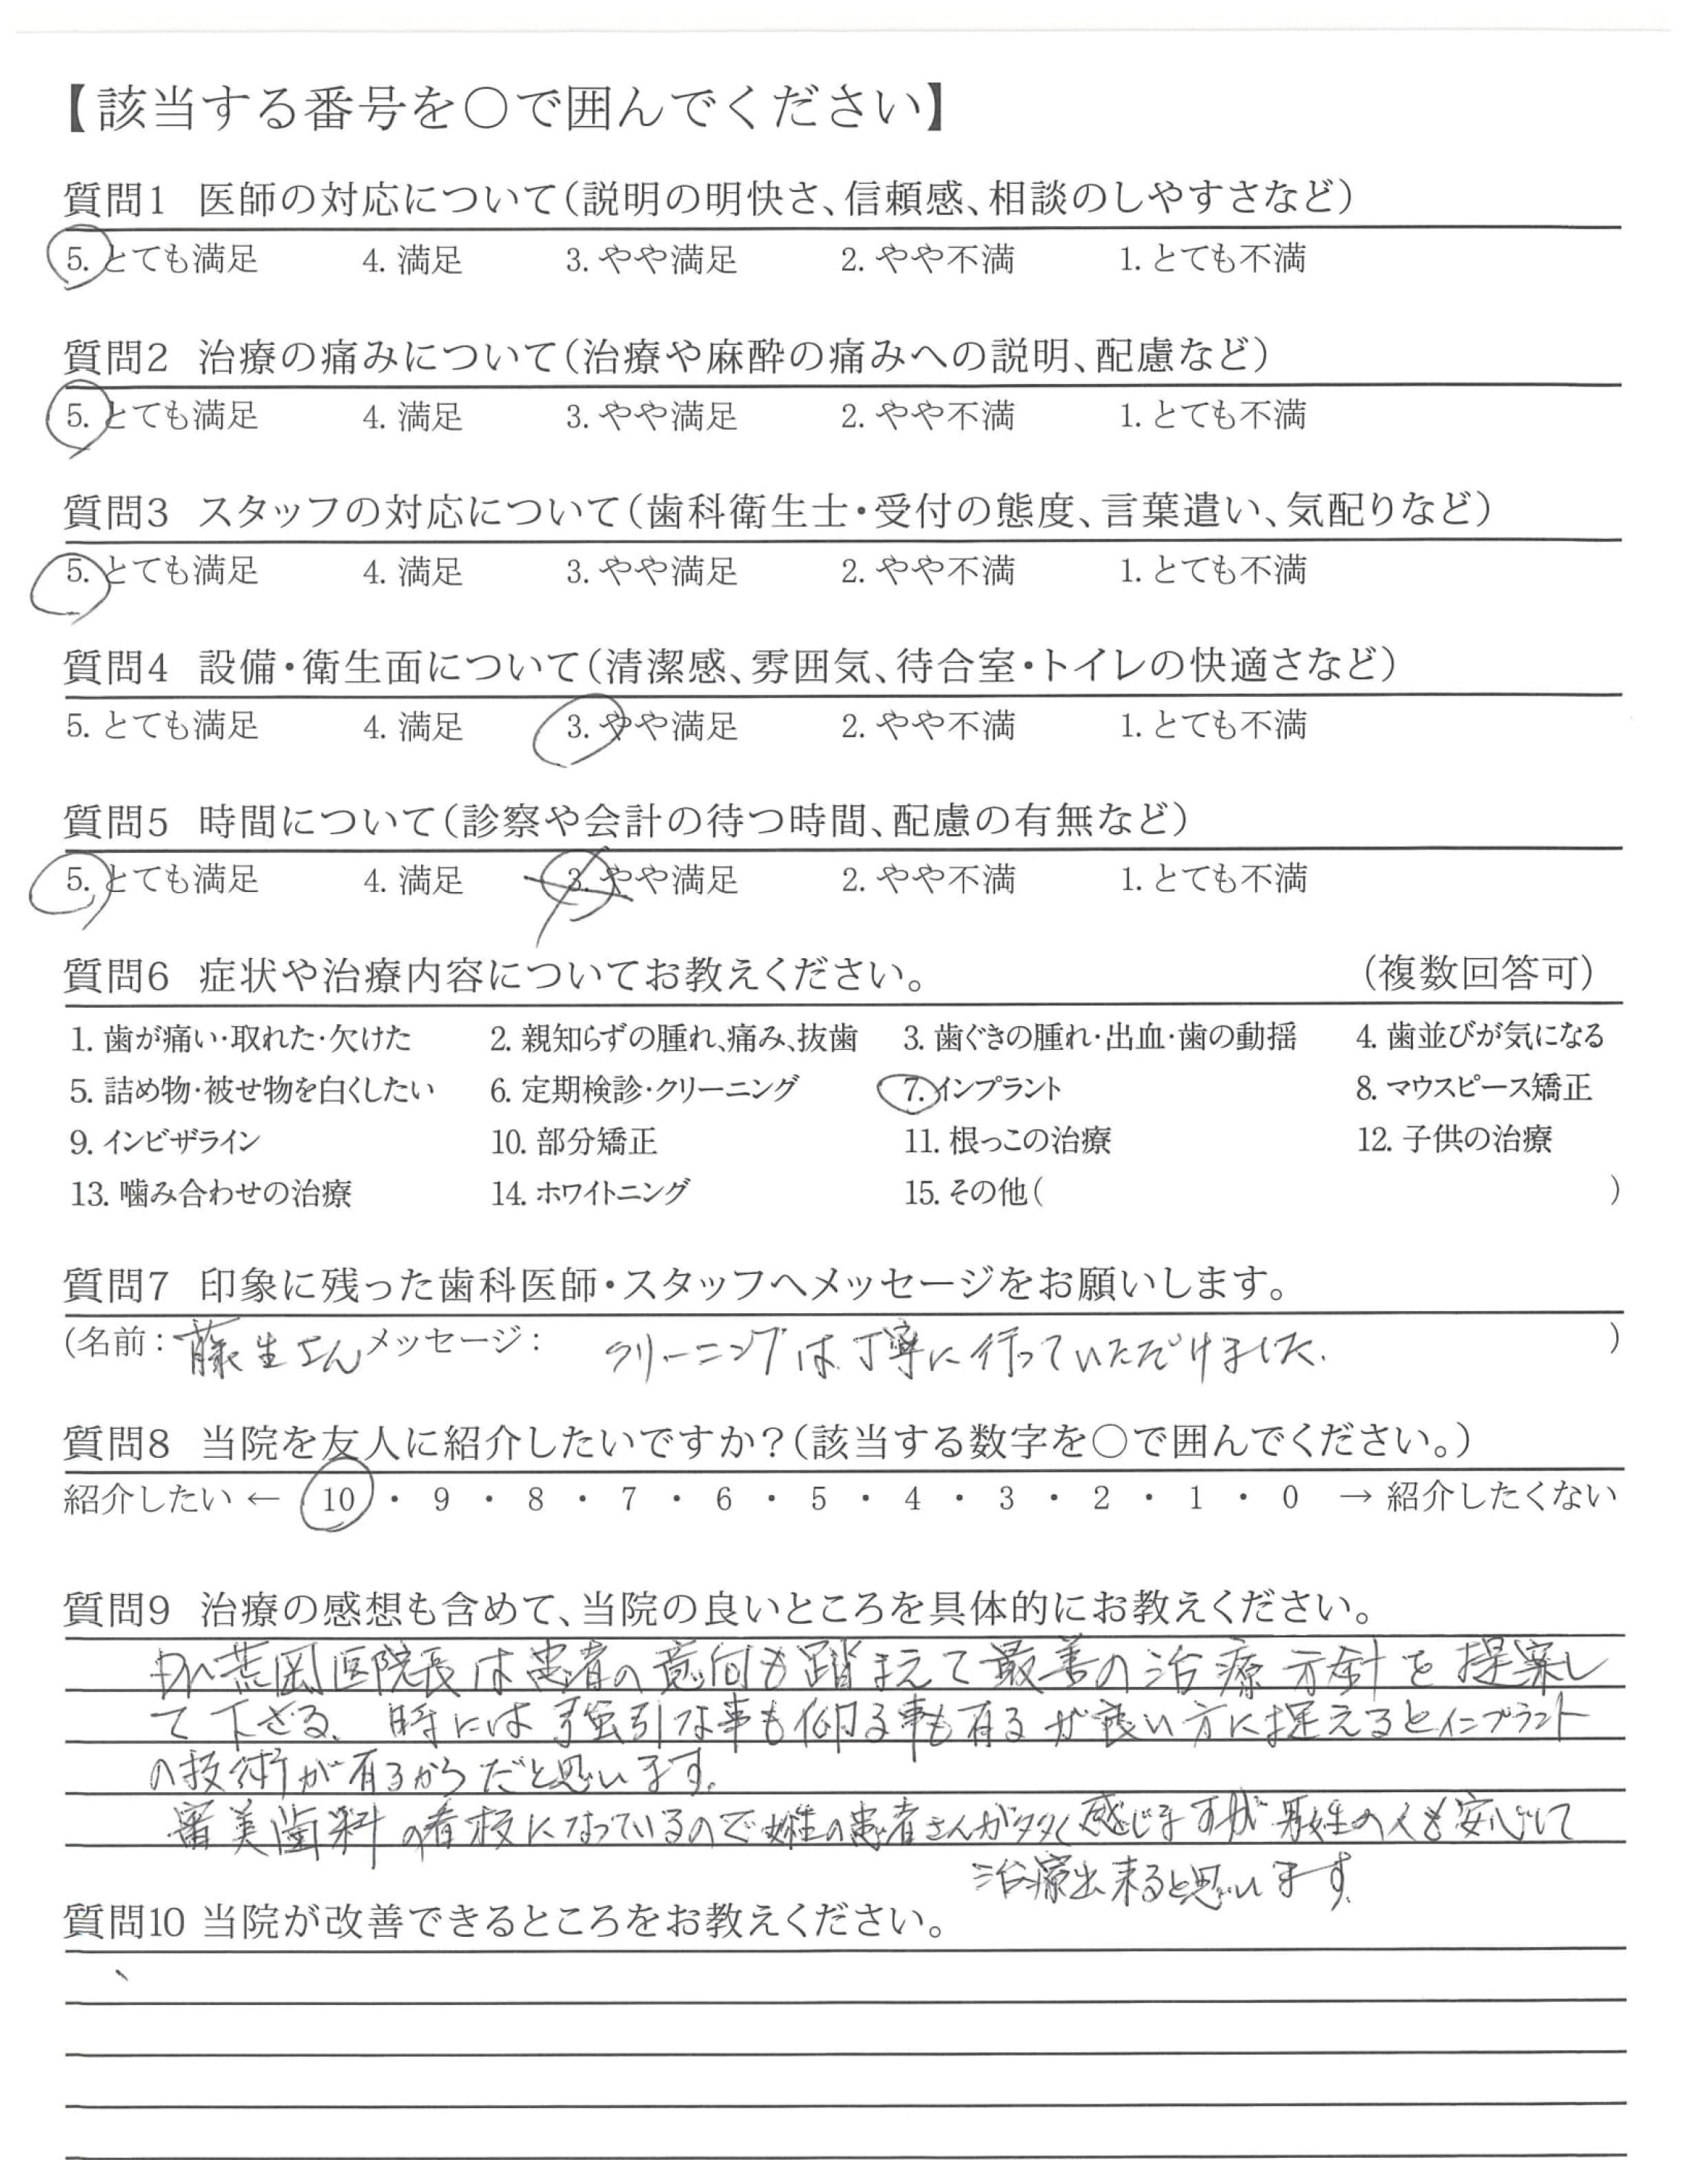 【該当する番号を○で囲んでください】
質問1 医師の対応について(説明の明快さ、信頼感、相談のしやすさなど)
5. とても満足 4. 満足 3. やや満足 2. やや不満 1. とても不満
質問2 治療の痛みについて(治療や麻酔の痛みへの説明、配慮など)
5. とても満足 4. 満足 3. やや満足 2. やや不満 1. とても不満
質問3 スタッフの対応について(歯科衛生士・受付の態度、言葉遣い、気配りなど)
5. とても満足 4. 満足 3. やや満足 2. やや不満 1. とても不満
質問4 設備・衛生面について(清潔感、雰囲気、待合室・トイレの快適さなど)
5. とても満足 4. 満足 3. やや満足 2. やや不満 1. とても不満
質問5 時間について(診察や会計の待つ時間、配慮の有無など)
5. とても満足 4. 満足 3. やや満足 2. やや不満 1. とても不満
質問6 症状や治療内容についてお教えください。 (複数回答可)
1. 歯が痛い・取れた・欠けた 2. 親知らずの腫れ、痛み、抜歯 3. 歯ぐきの腫れ・出血・歯の動揺 4. 歯並びが気になる
5. 詰め物・被せ物を白くしたい 6. 定期検診・クリーニング 7. インプラント 8. マウスピース矯正
9. インビザライン 10. 部分矯正 11. 根っこの治療 12. 子供の治療
13. 噛み合わせの治療 14. ホワイトニング 15. その他( )
質問7 印象に残った歯科医師・スタッフへメッセージをお願いします。
(名前: 藤生さん メッセージ: クリーニングは丁寧に行っていただけました. )
質問8 当院を友人に紹介したいですか?(該当する数字を○で囲んでください。)
紹介したい ← 10 ・ 9 ・ 8 ・ 7 ・ 6 ・ 5 ・ 4 ・ 3 ・ 2 ・ 1 ・ 0 → 紹介したくない
質問9 治療の感想も含めて、当院の良いところを具体的にお教えください。
Dr荒岡医院長は患者の意向も踏まえて最善の治療方針を提案し
て下さる、時には強引な事も仰る事も有るが良い方に捉えるとインプラント
の技術が有るからだと思います。
審美歯科の看板になっているので女性の患者さんが多く感じますが男性の人も安心して
治療出来ると思います。
質問10 当院が改善できるところをお教えください。